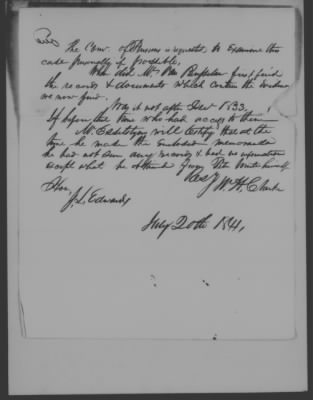 The Com. of Pensions is requested to examine this
case personally if possible.
When did Mr. Van find
the records & documents which contain the evidence
we now find.
Was it not after 1833.
If before the time who had access to them
Mr. will certify that at the
time he made the enclosed memoranda
he had not seen any records & had no information
except what he obtained from himself
W. H. Clark
Hon.
J. L. Edwards
July 20th 1841.